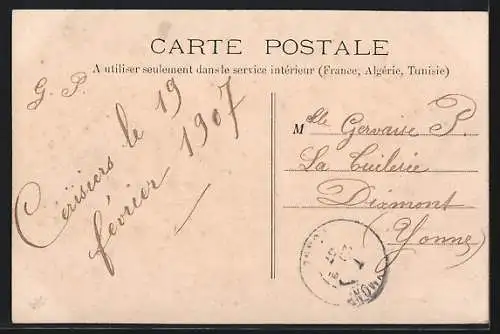 CARTE POSTALE
A utiliser seulement dans le service intérieur (France, Algérie, Tunisie)
G. P.
Cérisiers le 19
février 1907
Mlle Gervaise P.
La Tuilerie
Dixmont
(Yonne)